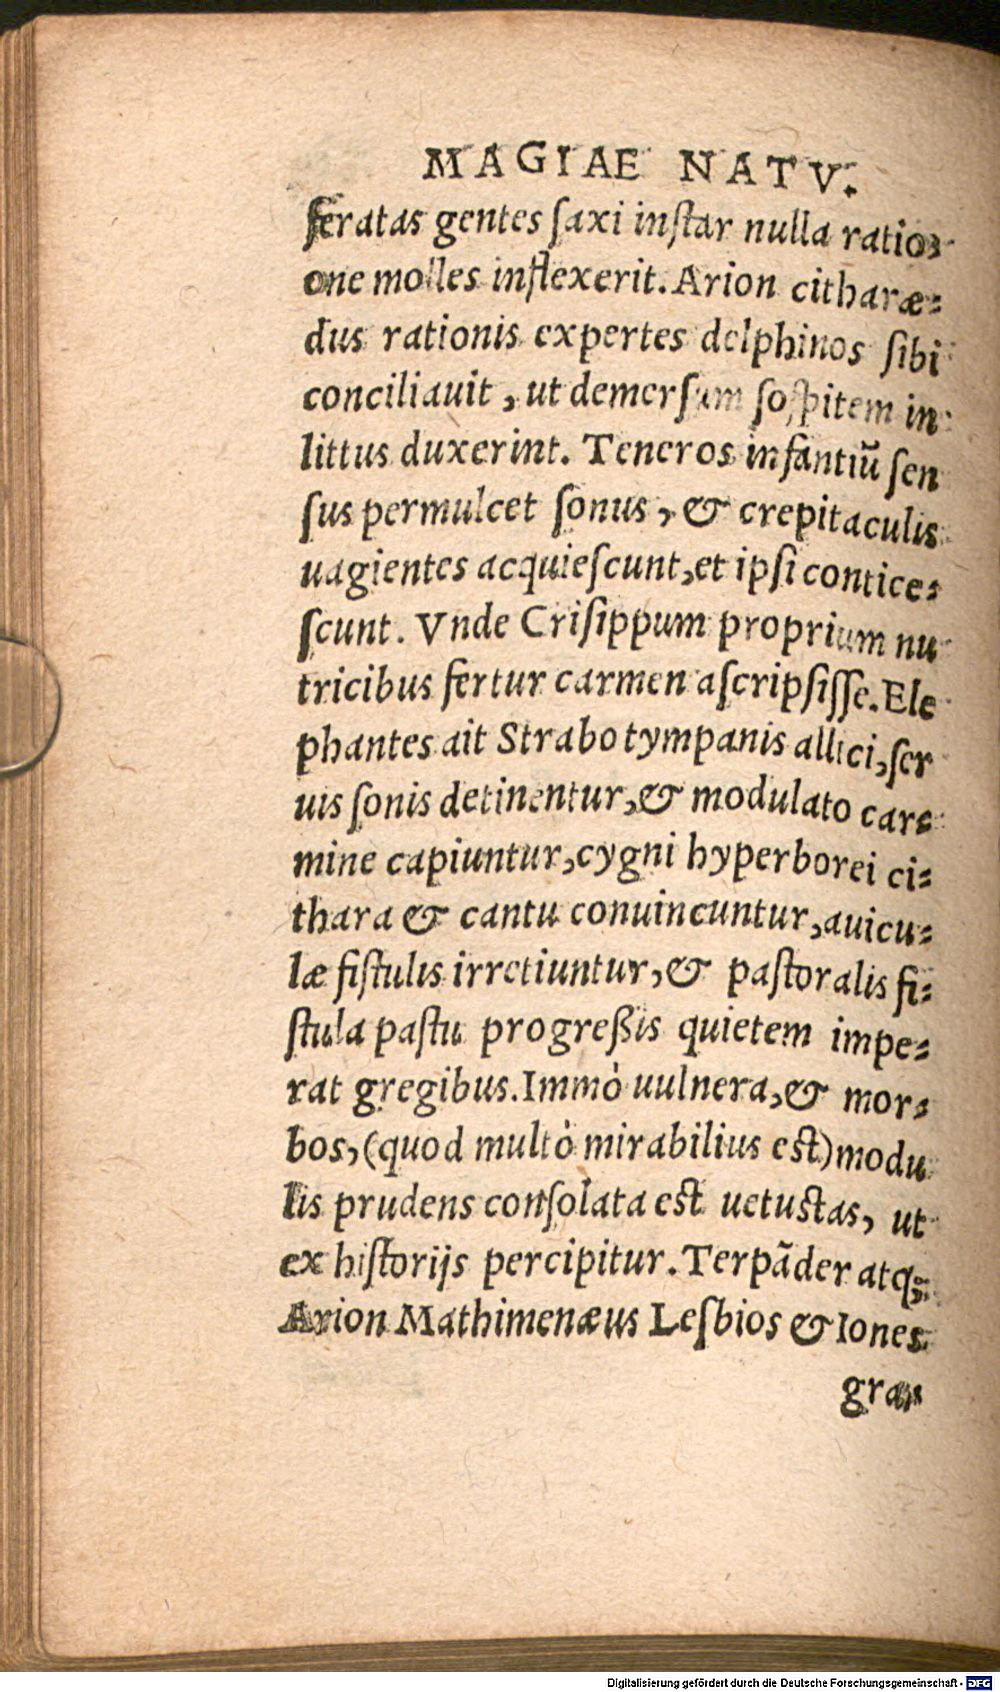 MAGIAE NATV.
feratas gentes ſaxi inſtar nulla ratio⸗
one molles inflexerit. Arion citharæ⸗
dus rationis expertes delphinos ſibi
conciliauit, ut demerſum ſoſpitem in
littus duxerint. Teneros infantiũ ſen
ſus permulcet ſonus, & crepitaculis
uagientes acquieſcunt, et ipſi contice⸗
ſcunt. Vnde Criſippum proprium nu
tricibus fertur carmen aſcripſiſſe. Ele
phantes ait Strabo tympanis allici, ſer
uis ſonis detinentur, & modulato car⸗
mine capiuntur, cygni hyperborei ci⸗
thara & cantu conuincuntur, auicu⸗
læ fiſtulis irretiuntur, & paſtoralis fi⸗
ſtula paſtu progreßis quietem impe⸗
rat gregibus. Immò uulnera, & mor⸗
bos, (quod multò mirabilius eſt) modu
lis prudens conſolata eſt uetuſtas, ut
ex hiſtorijs percipitur. Terpãder atq;
Arion Mathimenæus Lesbios & Iones
gra⸗
Digitalisierung gefördert durch die Deutsche Forschungsgemeinschaft - DFG